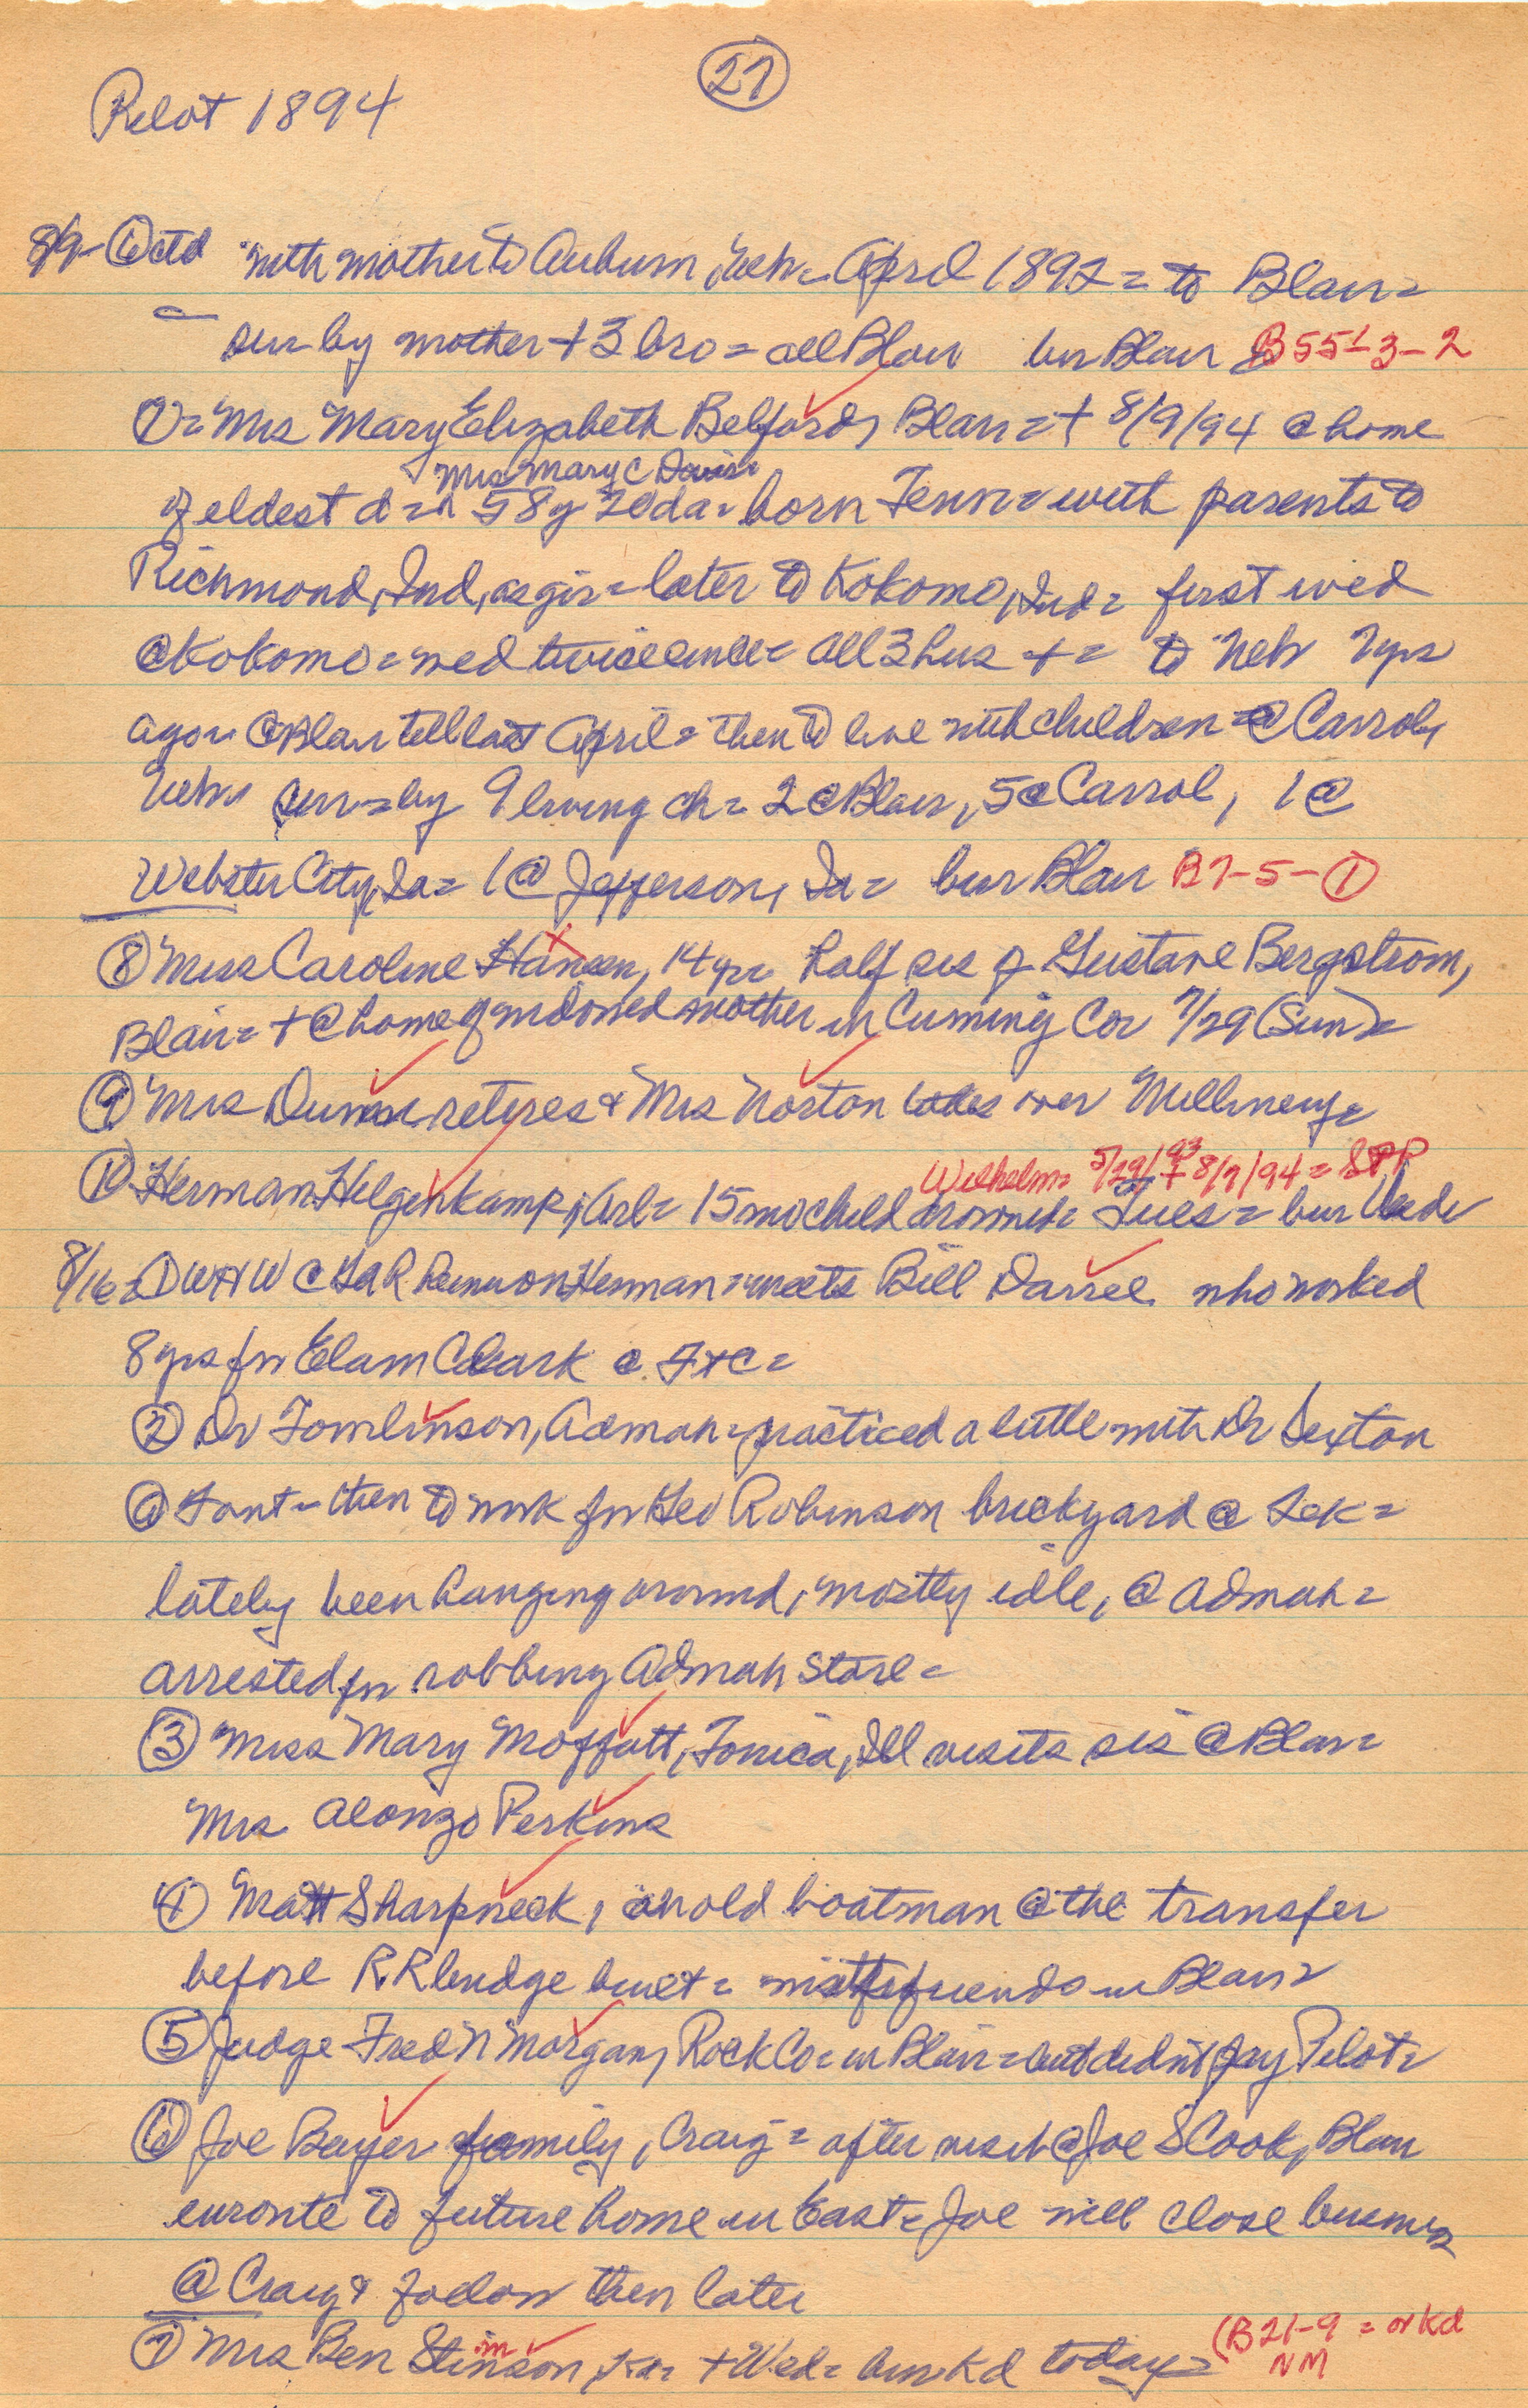 27
Pilot 1894
8/9- ⑥ctd with mother to Auburn, Neb= April 1892= to Blair=
sur by mother + 3 bro = all Blair bur Blair B55-3-2
⑦= Mrs Mary Elizabeth Belford, Blair=† 8/9/94 @ home
Mrs Mary C Davis=
of eldest d= 58y 20da= born Tenn= with parents to
Richmond, Ind, as girl= later to Kokomo, Ind= first wed
@ Kokomo= wed twice since= all 3 hus †= to Neb 7yrs
ago= @ Blair till last April= then to live with children @ Carrol,
Neb= sur=by 9 living ch= 2 @ Blair, 5 @ Carrol, 1 @
Webster City, Ia= 1 @ Jefferson, Ia= bur Blair B7-5-①
⑧ Miss Caroline Hansen, 14 yr= half sis of Gustave Bergstrom,
Blair= † @ home of widowed mother in Cuming Co= 7/29 (Sun)=
⑨ Mrs Dunn retires & Mrs Norton takes over Millinery=
Wilhelm= 5/29/93 † 8/7/94 = SPP
⑩ Herman Hilgenkamp, Arl= 15 mo child drowned= Tues= bur
8/16= ① WHW @ GAR Reunion Herman= meets Bill Darrel who worked
8 yrs for Elam Clark @ Ft C=
② Dr Tomlinson, Admah= practiced a little with Dr Sexton
@ Font= then to work for Geo Robinson brickyard @ Tek=
lately been hanging around, mostly idle, @ Admah=
arrested for robbing Admah store=
③ Miss Mary Moffatt, Tonica, Ill visits sis @ Blair=
Mrs Alonzo Perkins
④ Matt Sharpneck, an old boatman @ the transfer
before RR bridge built= friends in Blair=
⑤ Judge Fred N Morgan, Rock Co= in Blair= but didnt pay Pilot=
⑥ Joe Bayer family, Craig= after visit @ Joe S Cook, Blair
enroute to future home in East= Joe will close business
@ Craig & follow then later
⑦ Mrs Ben Stinson, Ka= † Wed= bur Kd today= (B21-9 = or Kd
m NM